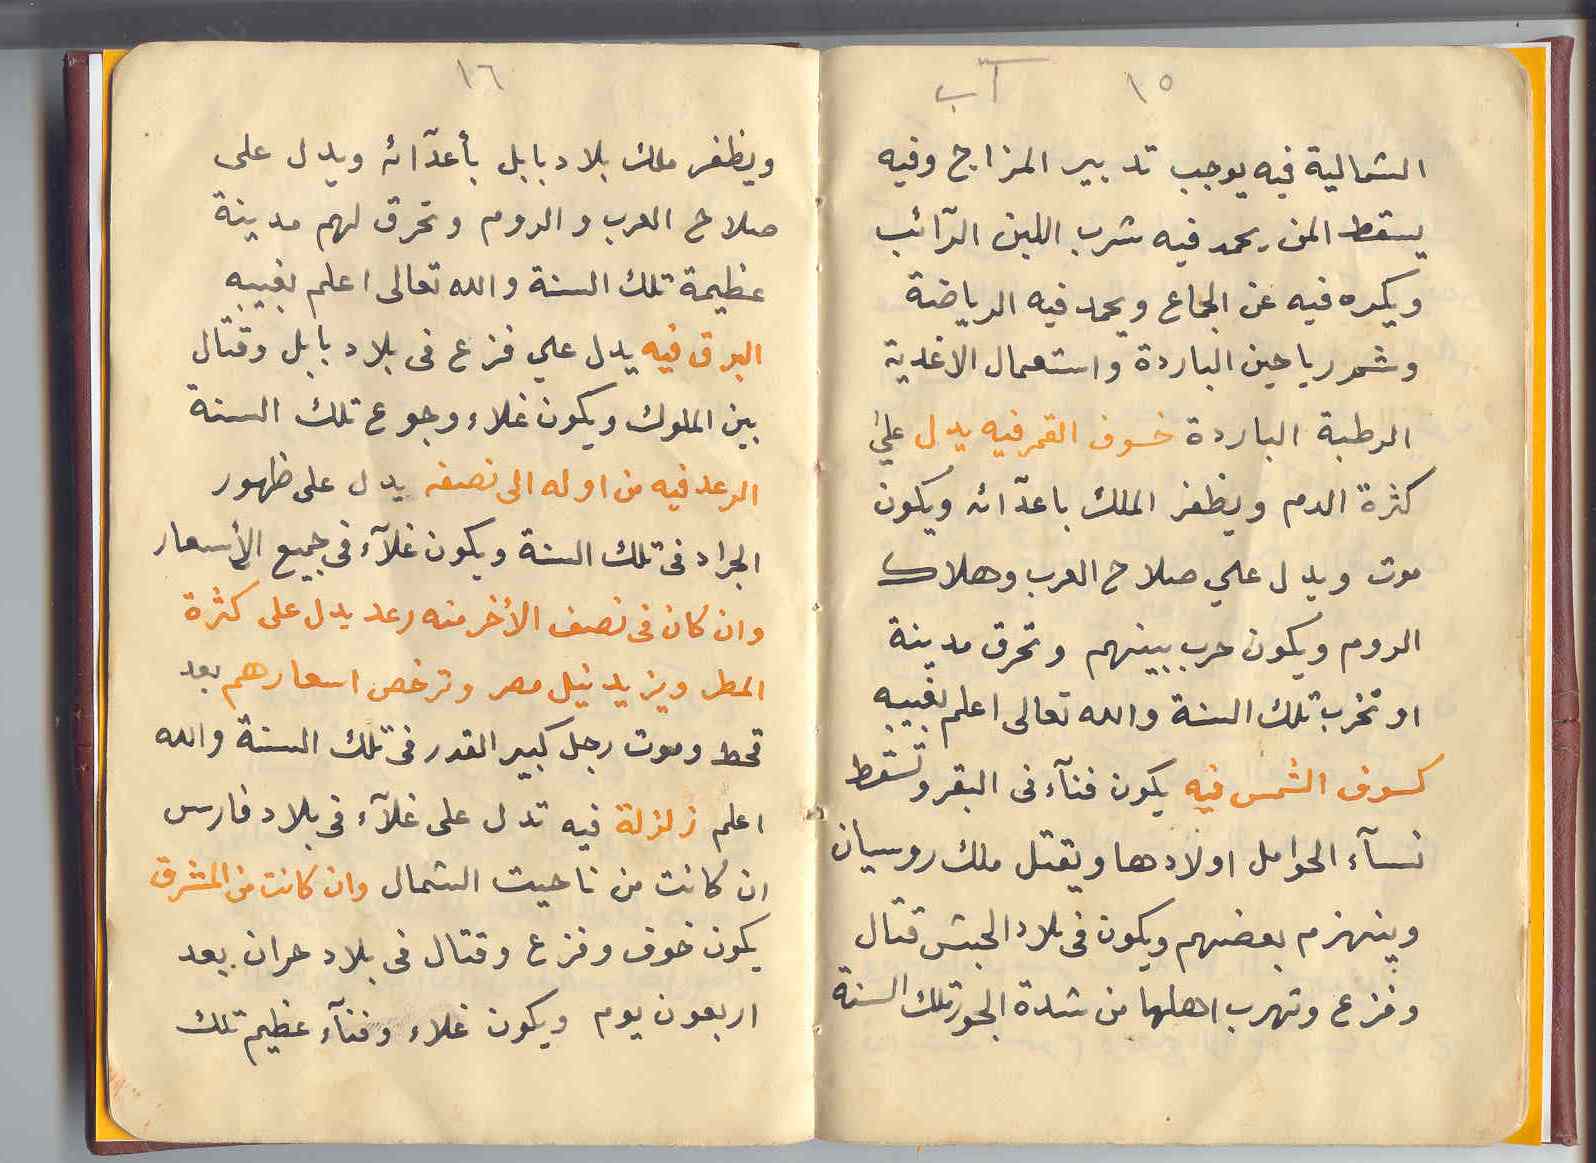 ١٥ آب
الشمالية فيه يوجب تدبير المزاج وفيه
يسقط المن يحمد فيه شرب اللبن الرآئب
ويكره فيه عن الجماع ويحمد فيه الرياضة
وشم رياحين الباردة واستعمال الاغدية
الرطبة الباردة خسوف القمر فيه يدل علي
كثرة الدم ويظفر الملك باعدآئه ويكون
موت ويدل علي صلاح العرب وهلاك
الروم ويكون حرب بينهم وتحرق مدينة
او تخرب تلك السنة والله تعالى اعلم بغيبه
كسوف الشمس فيه يكون فنآء فى البقر وتسقط
نسآء الحوامل اولادها ويقتل ملك روسيان
وينهزم بعضهم ويكون فى بلاد الحبش قتال
وفزع وتهرب اهلها من شدة الجور تلك السنة
١٦
ويظفر ملك بلاد بابل بأعدآئه ويدل على
صلاح العرب و الروم وتحرق لهم مدينة
عظيمة تلك السنة والله تعالى اعلم بغيبه
البرق فيه يدل علي فزع فى بلاد بابل وقتال
بين الملوك ويكون غلاء وجوع تلك السنة
الرعد فيه من اوله الى نصفه يدل على ظهور
الجراد فى تلك السنة ويكون غلآء فى جميع الأسعار
وان كان فى نصف الأخر منه رعد يدل على كثرة
المطر ويزيد نيل مصر وترخص اسعارهم بعد
قحط وموت رجل كبير القدر فى تلك السنة والله
اعلم زلزلة فيه تدل على غلآء فى بلاد فارس
ان كانت من ناحيت الشمال وان كانت من المشرق
يكون خوف وفزع وقتال فى بلاد حران بعد
اربعون يوم ويكون غلاء وفنآء عظيم تلك